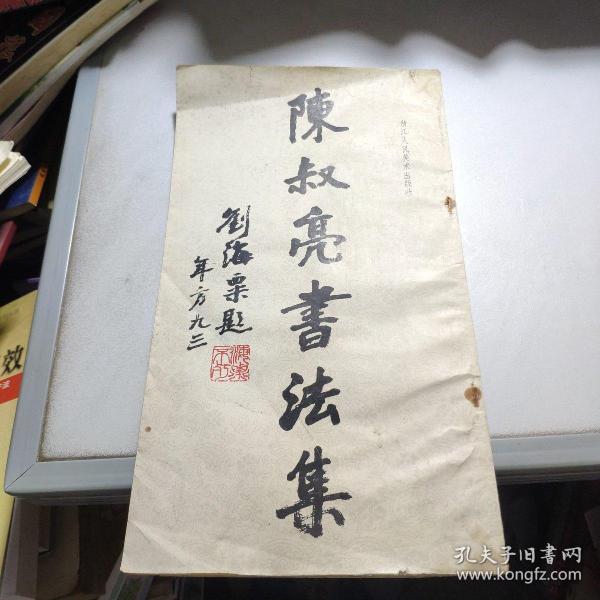 浙江人民美术出版社
陳叔亮書法集
劉海粟題
年方九三
效
孔夫子旧书网
www.kongfz.com